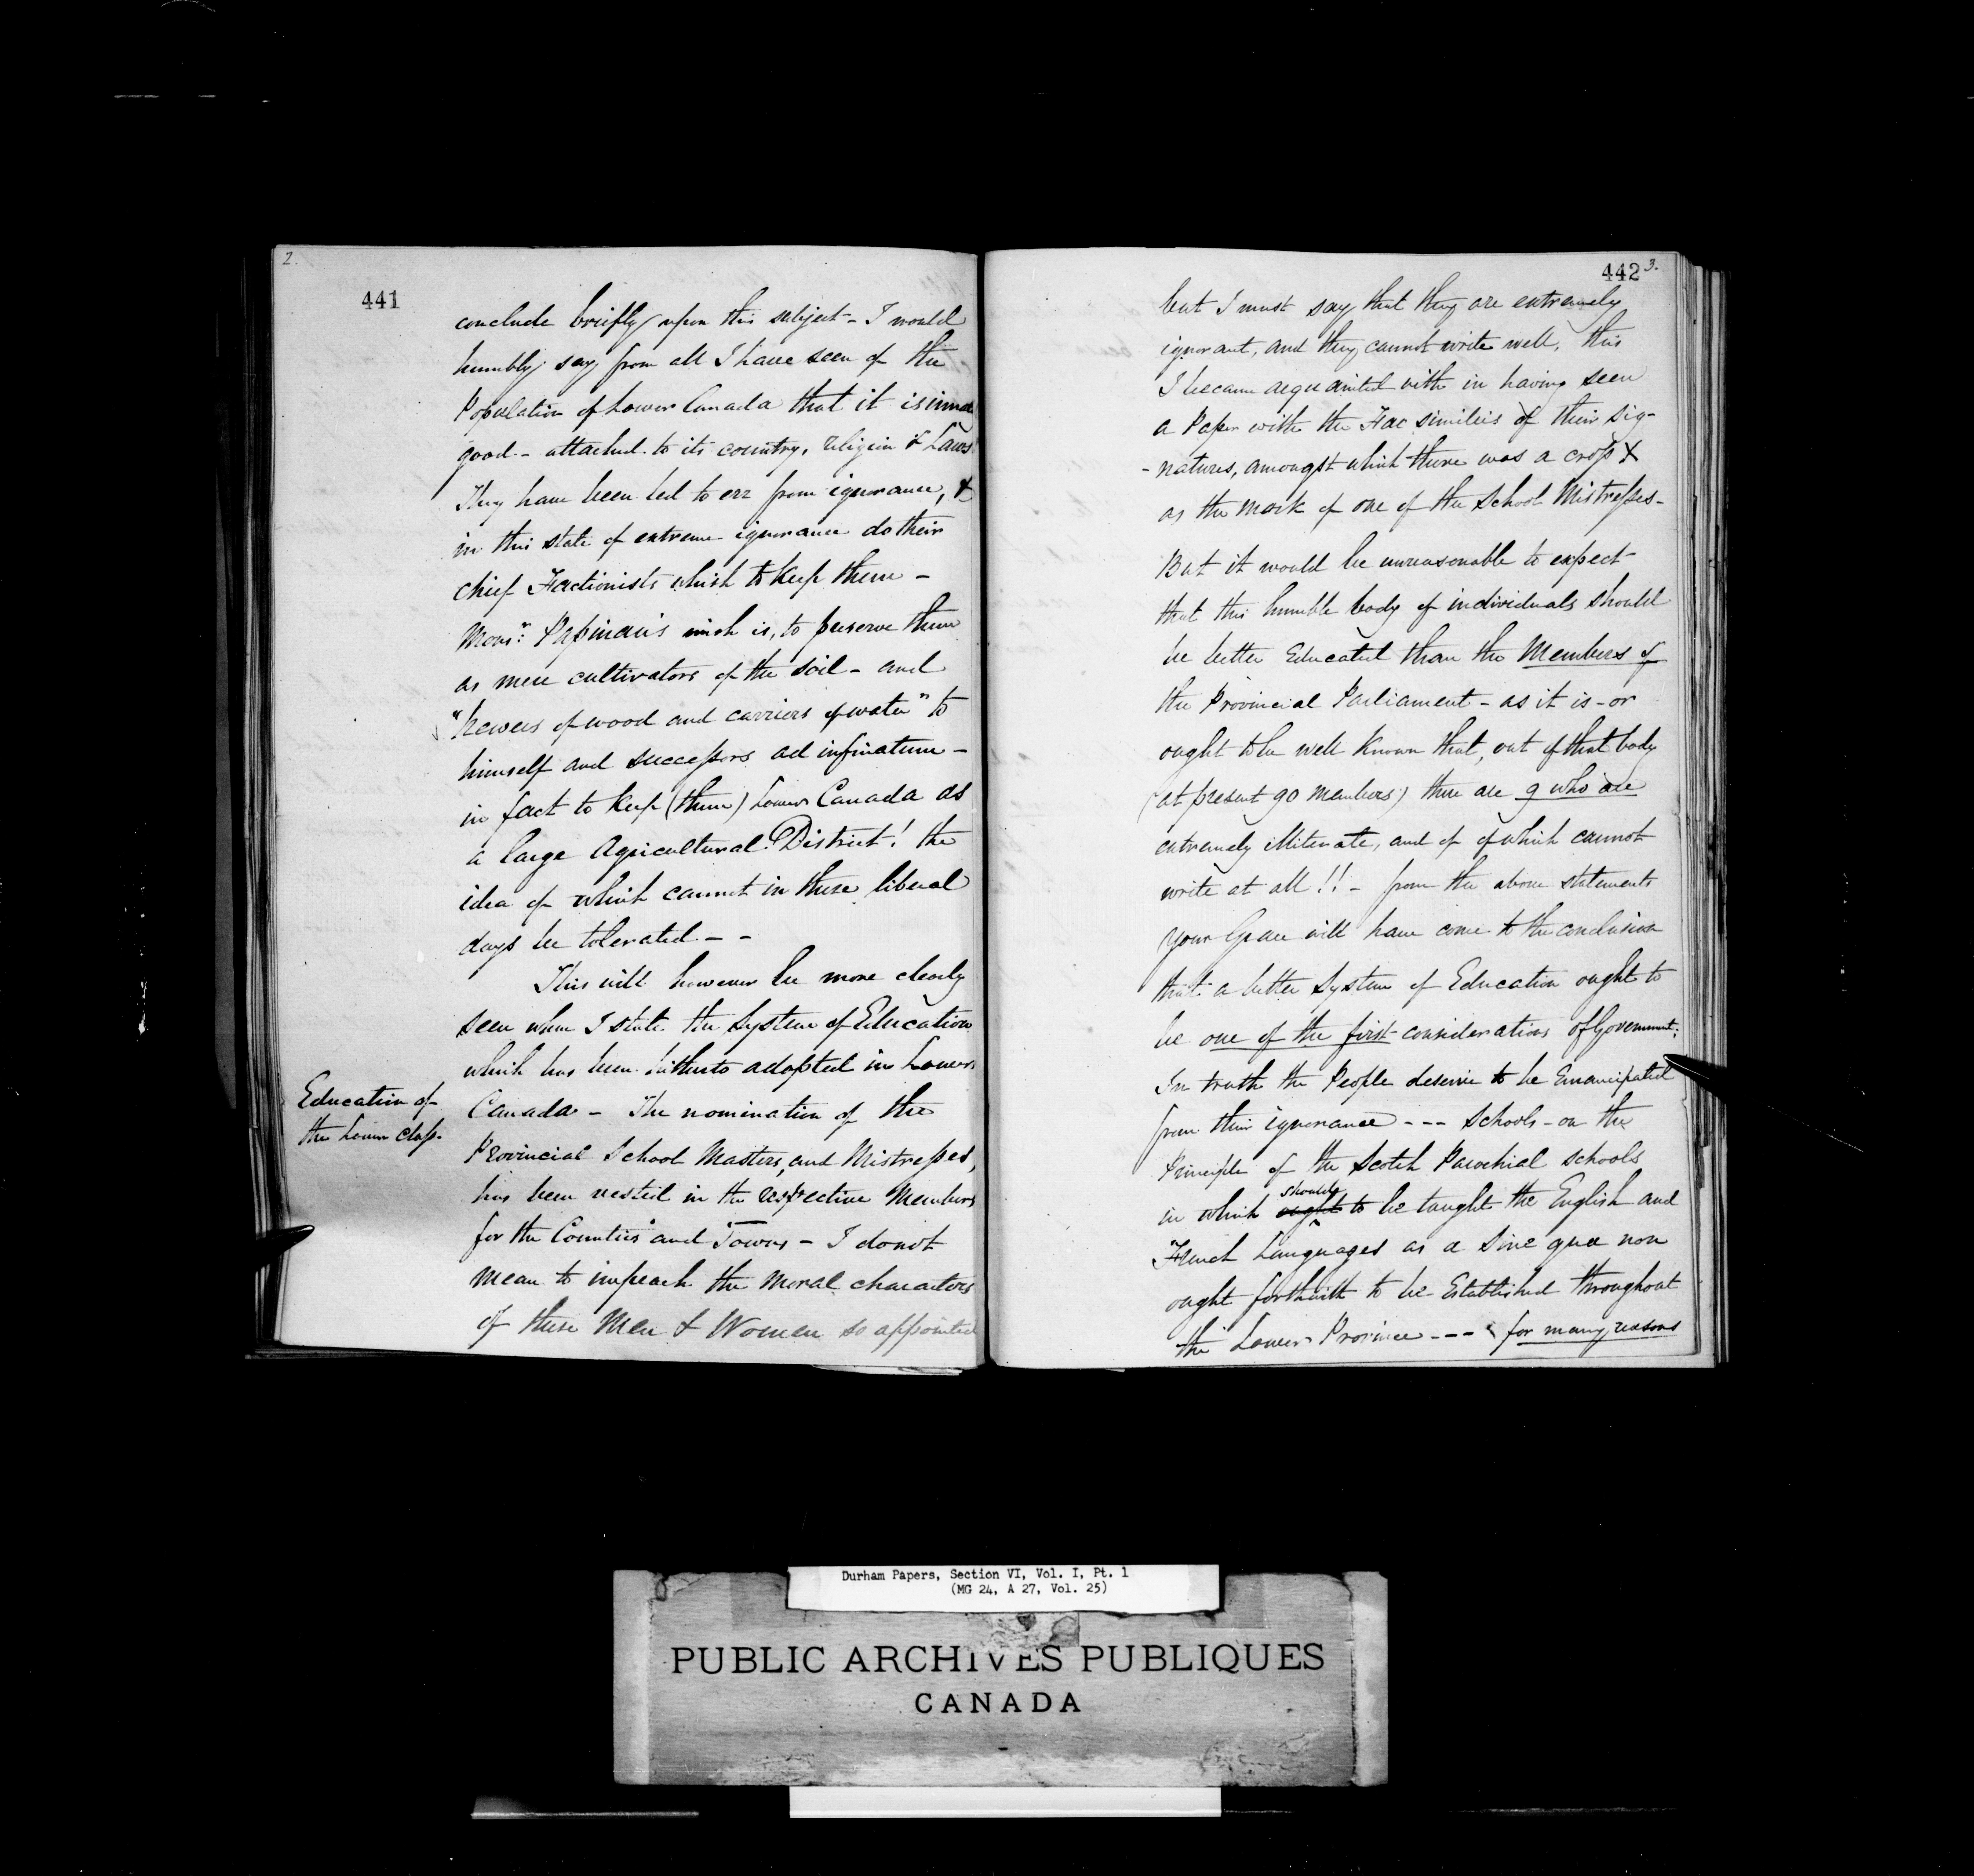 2.
441
conclude briefly upon this subject - I would
humbly say from all I have seen of the
Population of Lower Canada that it is
good - attached to its country, religion & Laws
They have been led to err from ignorance, &
in this state of extreme ignorance do their
chief Factionists whish to keep them -
Monsr: Papineau's wish is, to preserve them
as mere cultivators of the soil - and
"hewers of wood and carriers of water" to
himself and successors ad infinatum -
in fact to keep (them) Lower Canada as
a large Agricultural District! the
idea of which cannot in these liberal
days be tolerated - -
This will however be more clearly
seen when I state the System of Education
which has been hitherto adopted in Lower
Education of
the Lower class.
Canada - The nomination of the
Provincial School Masters, and Mistresses,
has been vested in the respective Members
for the Counties and Towns - I do not
mean to impeach the moral characters
of these Men & Women so appointed
442 3.
but I must say that they are extremely
ignorant, and they cannot write well, this
I became acquainted with in having seen
a Paper with the Fac similies of their sig-
-natures, amongst which there was a cross X
as the mark of one of the School Mistresses -
But it would be unreasonable to expect
that this humble body of individuals should
be better Educated than the Members of
the Provincial Parliament - as it is - or
ought to be well known that, out of that body
(at present 90 members) there are 9 who are
extremely illiterate, and of which cannot
write at all!! - from the above statements
your Grace will have come to the conclusion
that a better System of Education ought to
be one of the first considerations of Government.
In truth the People deserve to be Emancipated
from their ignorance - - - Schools - on the
Principle of the Scotch Parochial schools
in which ought to should be taught the English and
French Languages as a Sine qua non
ought forthwith to be Established throughout
the Lower Province - - - for many reasons
Durham Papers, Section VI, Vol. I, Pt. 1
(MG 24, A 27, Vol. 25)
PUBLIC ARCHIVES PUBLIQUES
CANADA